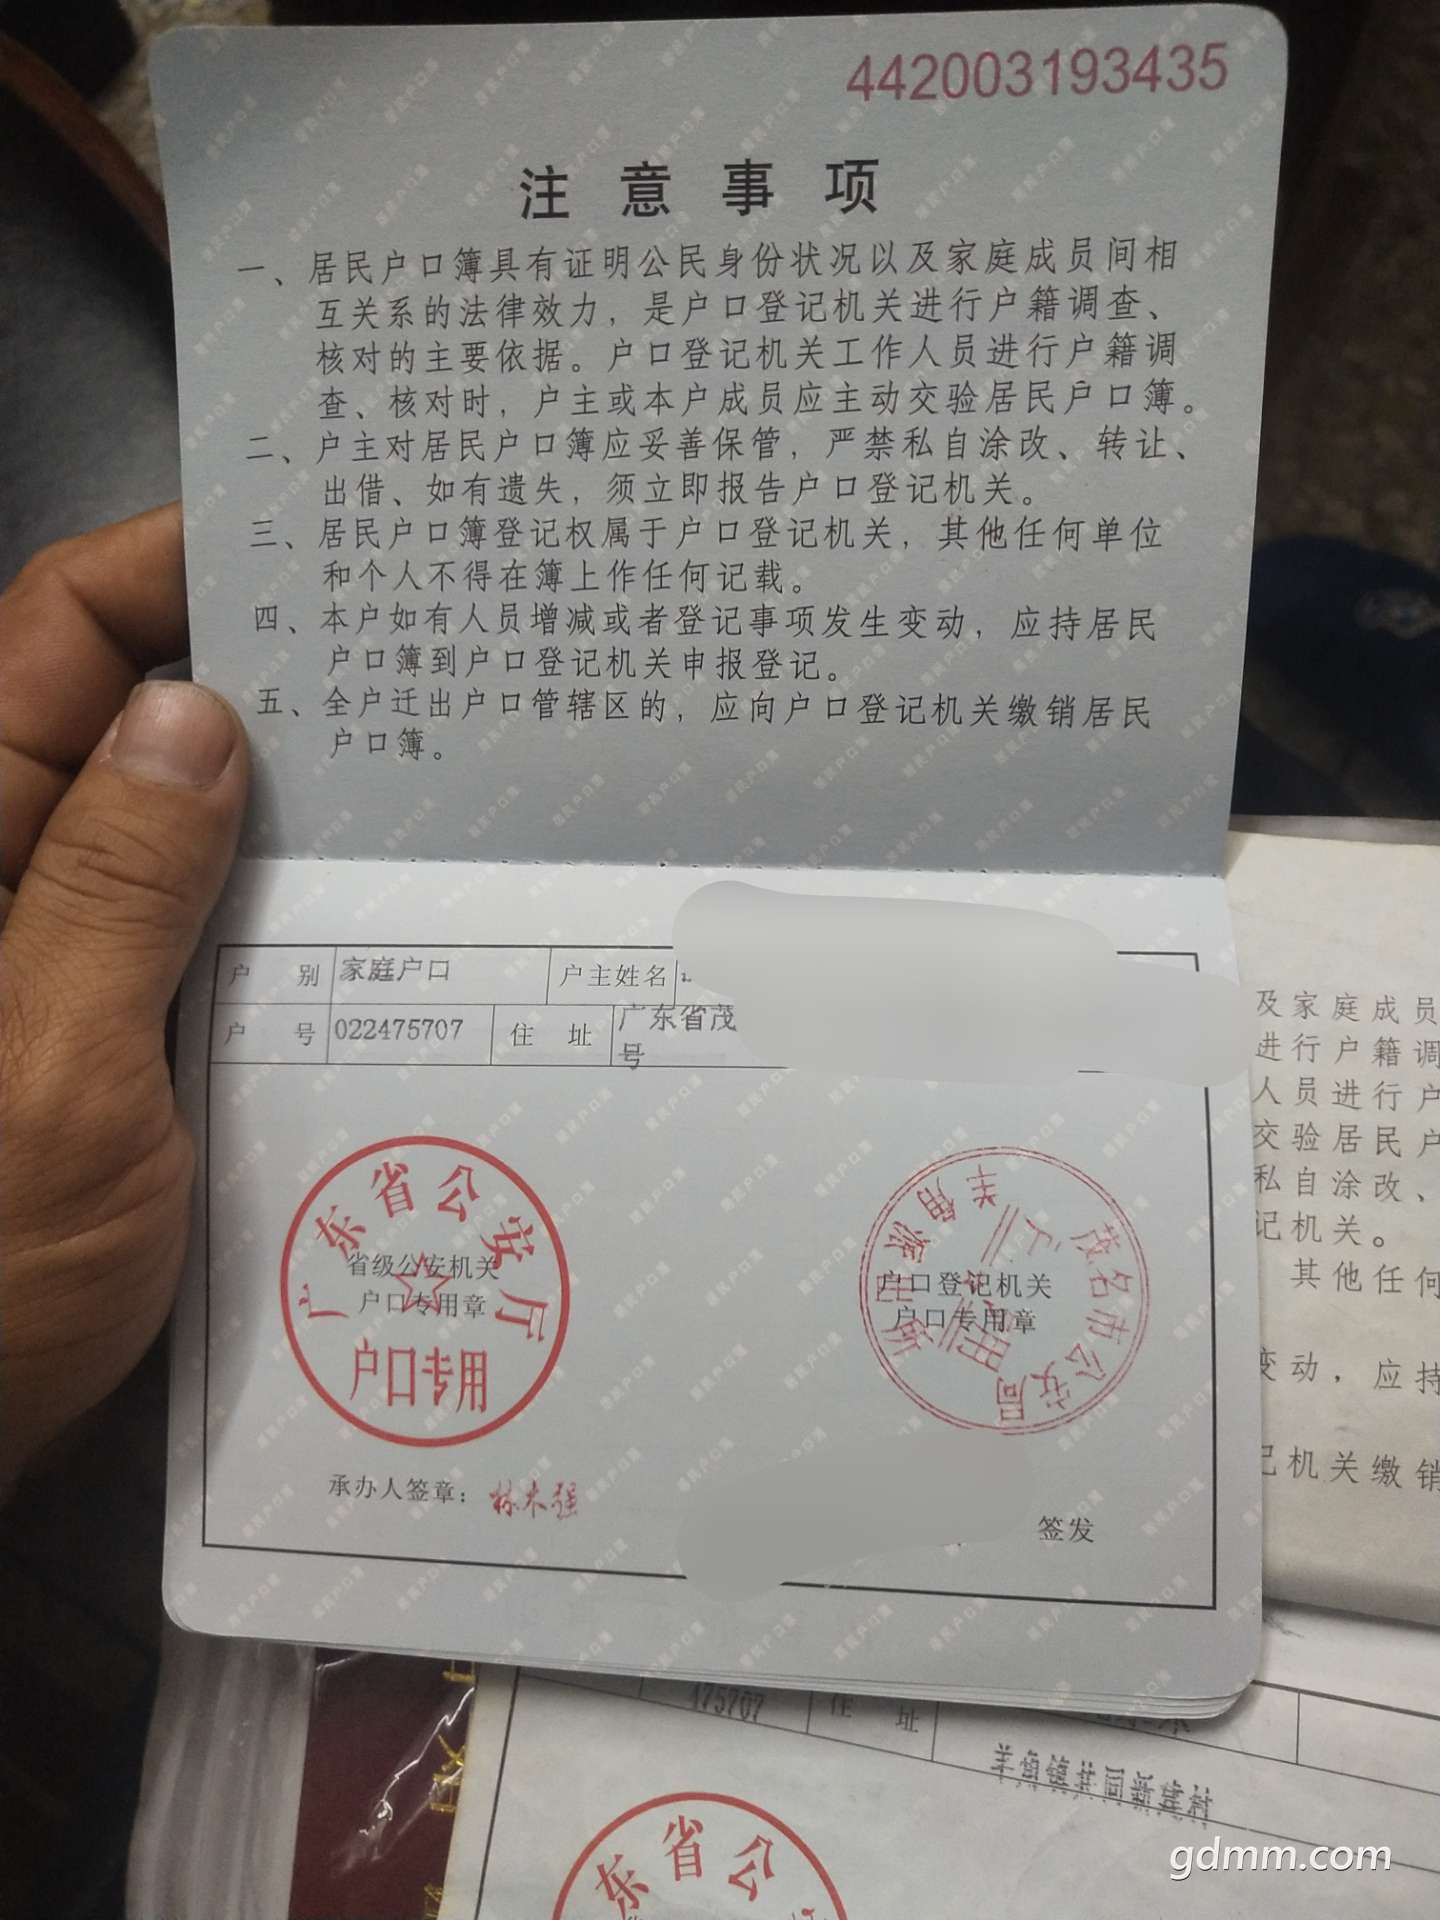 442003193435
注意事项
一、居民户口簿具有证明公民身份状况以及家庭成员间相
互关系的法律效力，是户口登记机关进行户籍调查、
核对的主要依据。户口登记机关工作人员进行户籍调
查、核对时，户主或本户成员应主动交验居民户口簿。
二、户主对居民户口簿应妥善保管，严禁私自涂改、转让、
出借、如有遗失，须立即报告户口登记机关。
三、居民户口簿登记权属于户口登记机关，其他任何单位
和个人不得在簿上作任何记载。
四、本户如有人员增减或者登记事项发生变动，应持居民
户口簿到户口登记机关申报登记。
五、全户迁出户口管辖区的，应向户口登记机关缴销居民
户口簿。
户别 家庭户口 户主姓名
户号 022475707 住址 广东省茂
号
广东省公安厅
省级公安机关
户口专用章
户口专用
茂名市公安局
羊角派出所
户口登记机关
户口专用章
承办人签章：
签发
及家庭成员
进行户籍调
人员进行户
交验居民户
私自涂改、
记机关。
其他任何
变动，应持
记机关缴销
475707 住址
羊角镇共同新建村
东省公
gdmm.com